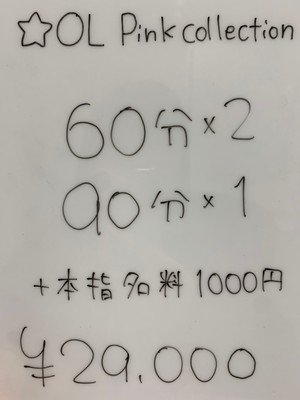 ☆OL Pink collection
60分×2
90分×1
+本指名料1000円
¥29.000